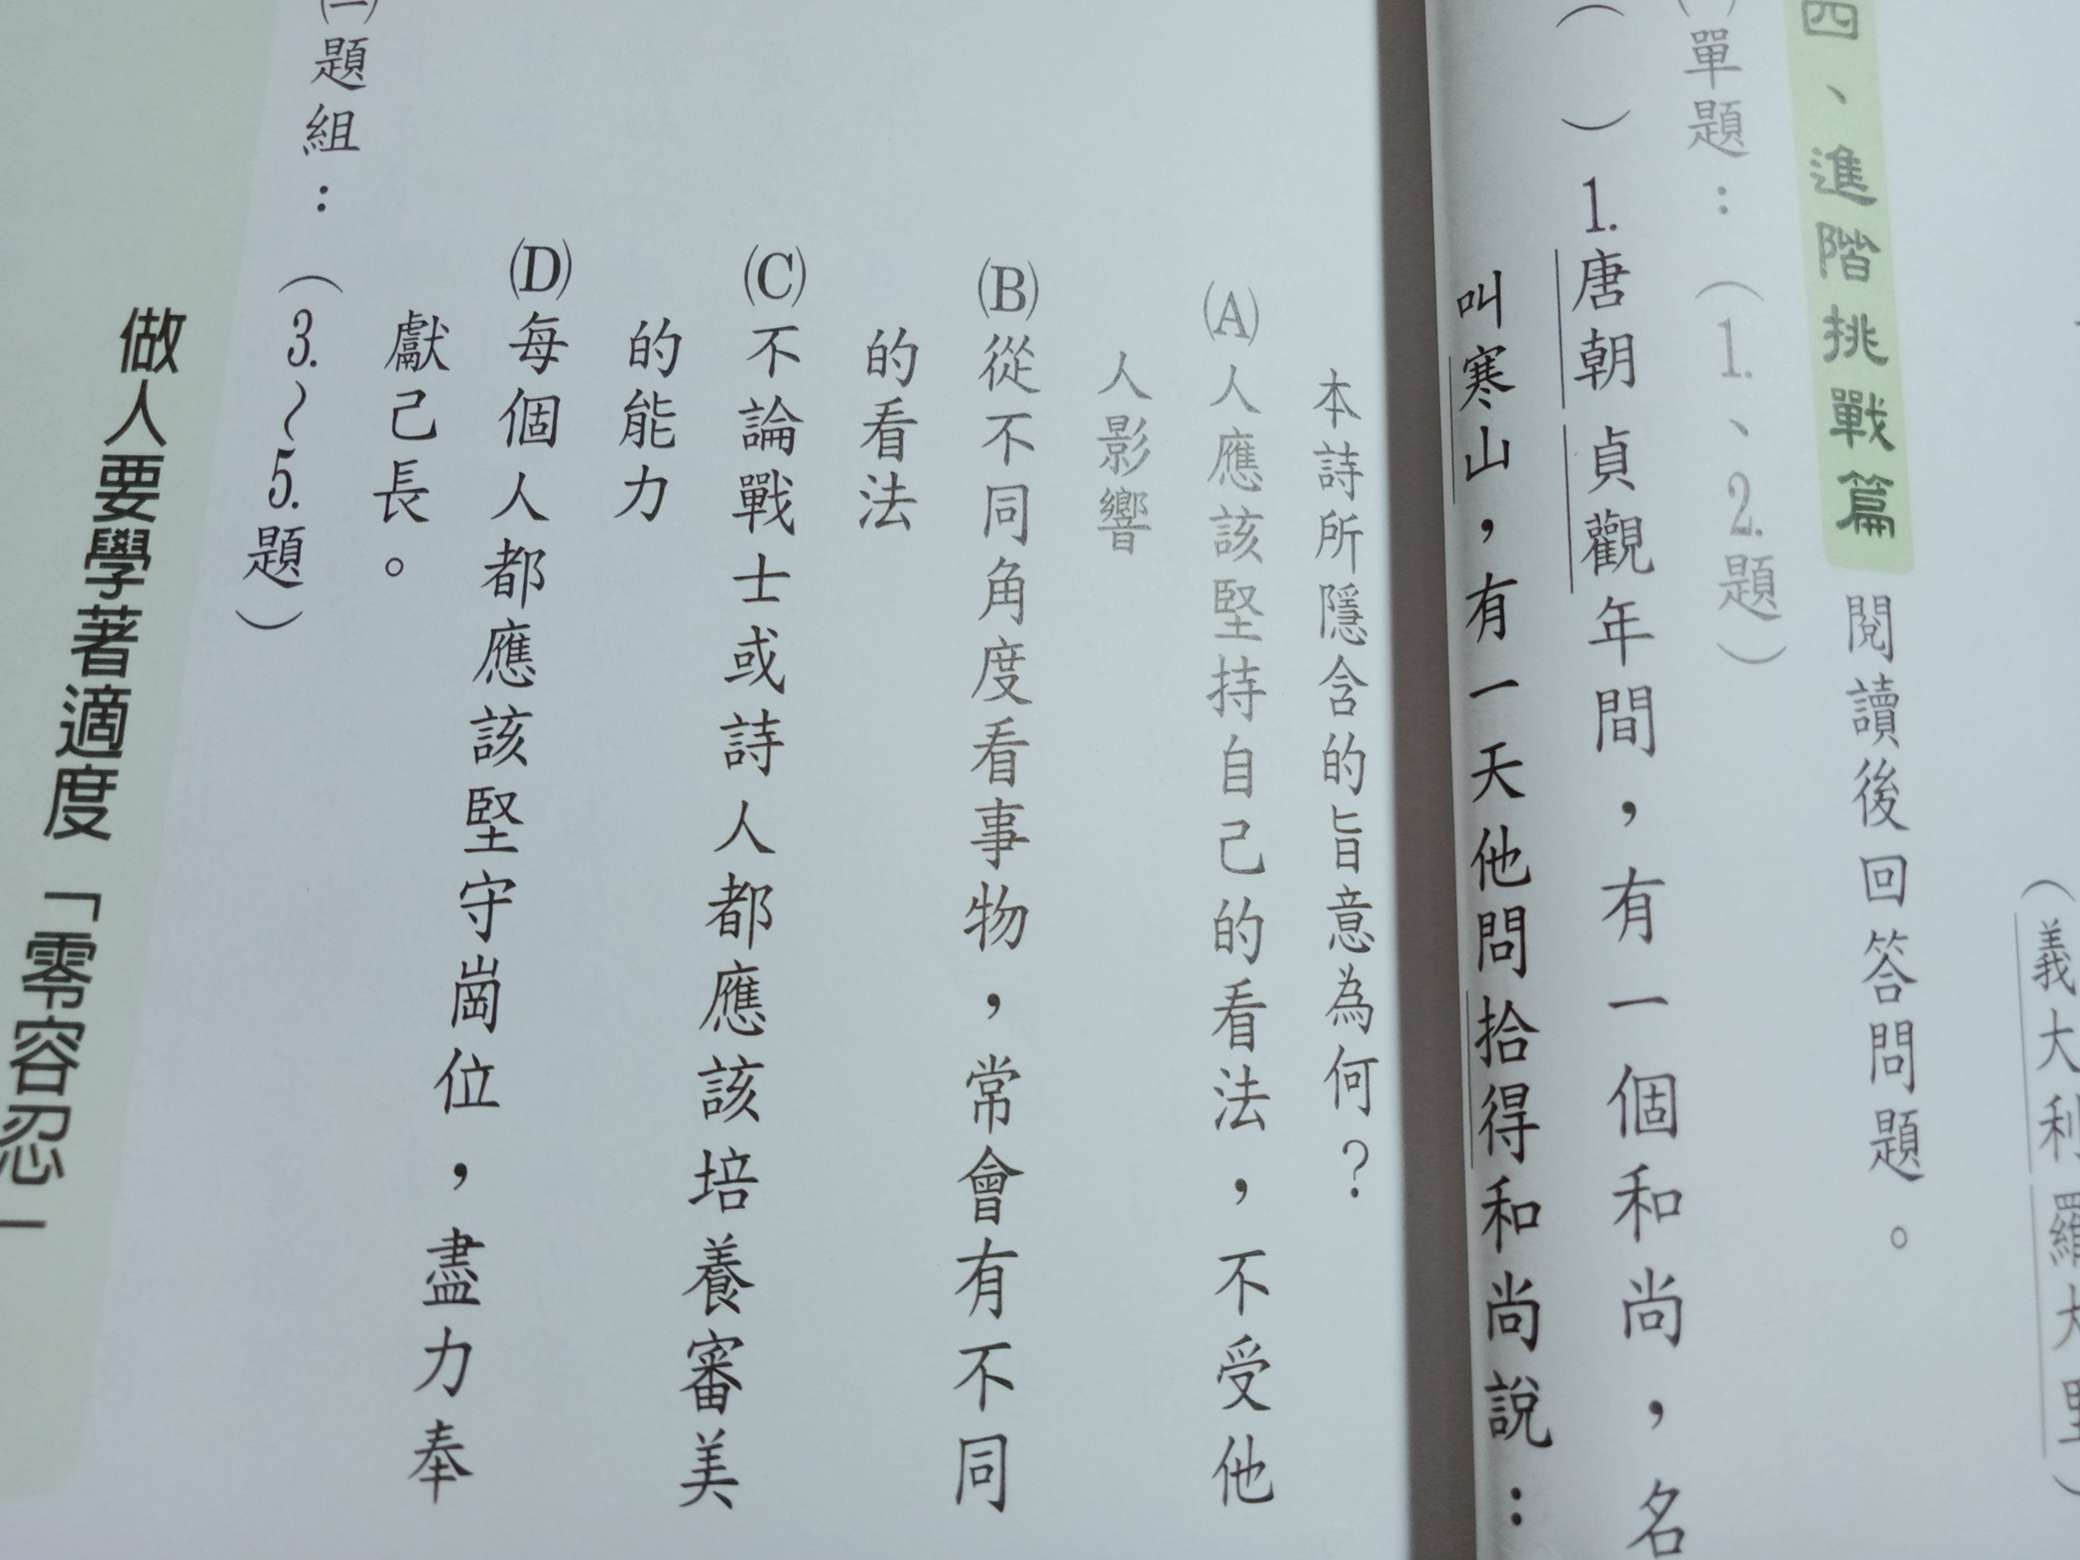 (義大利 羅大里)
四、進階挑戰篇 閱讀後回答問題。
單題:(1.、2.題)
( )1.唐朝貞觀年間,有一個和尚,名
叫寒山,有一天他問拾得和尚說:
本詩所隱含的旨意為何?
(A)人應該堅持自己的看法,不受他
人影響
(B)從不同角度看事物,常會有不同
的看法
(C)不論戰士或詩人都應該培養審美
的能力
(D)每個人都應該堅守崗位,盡力奉
獻己長。
題組:(3.~5.題)
做人要學著適度「零容忍」